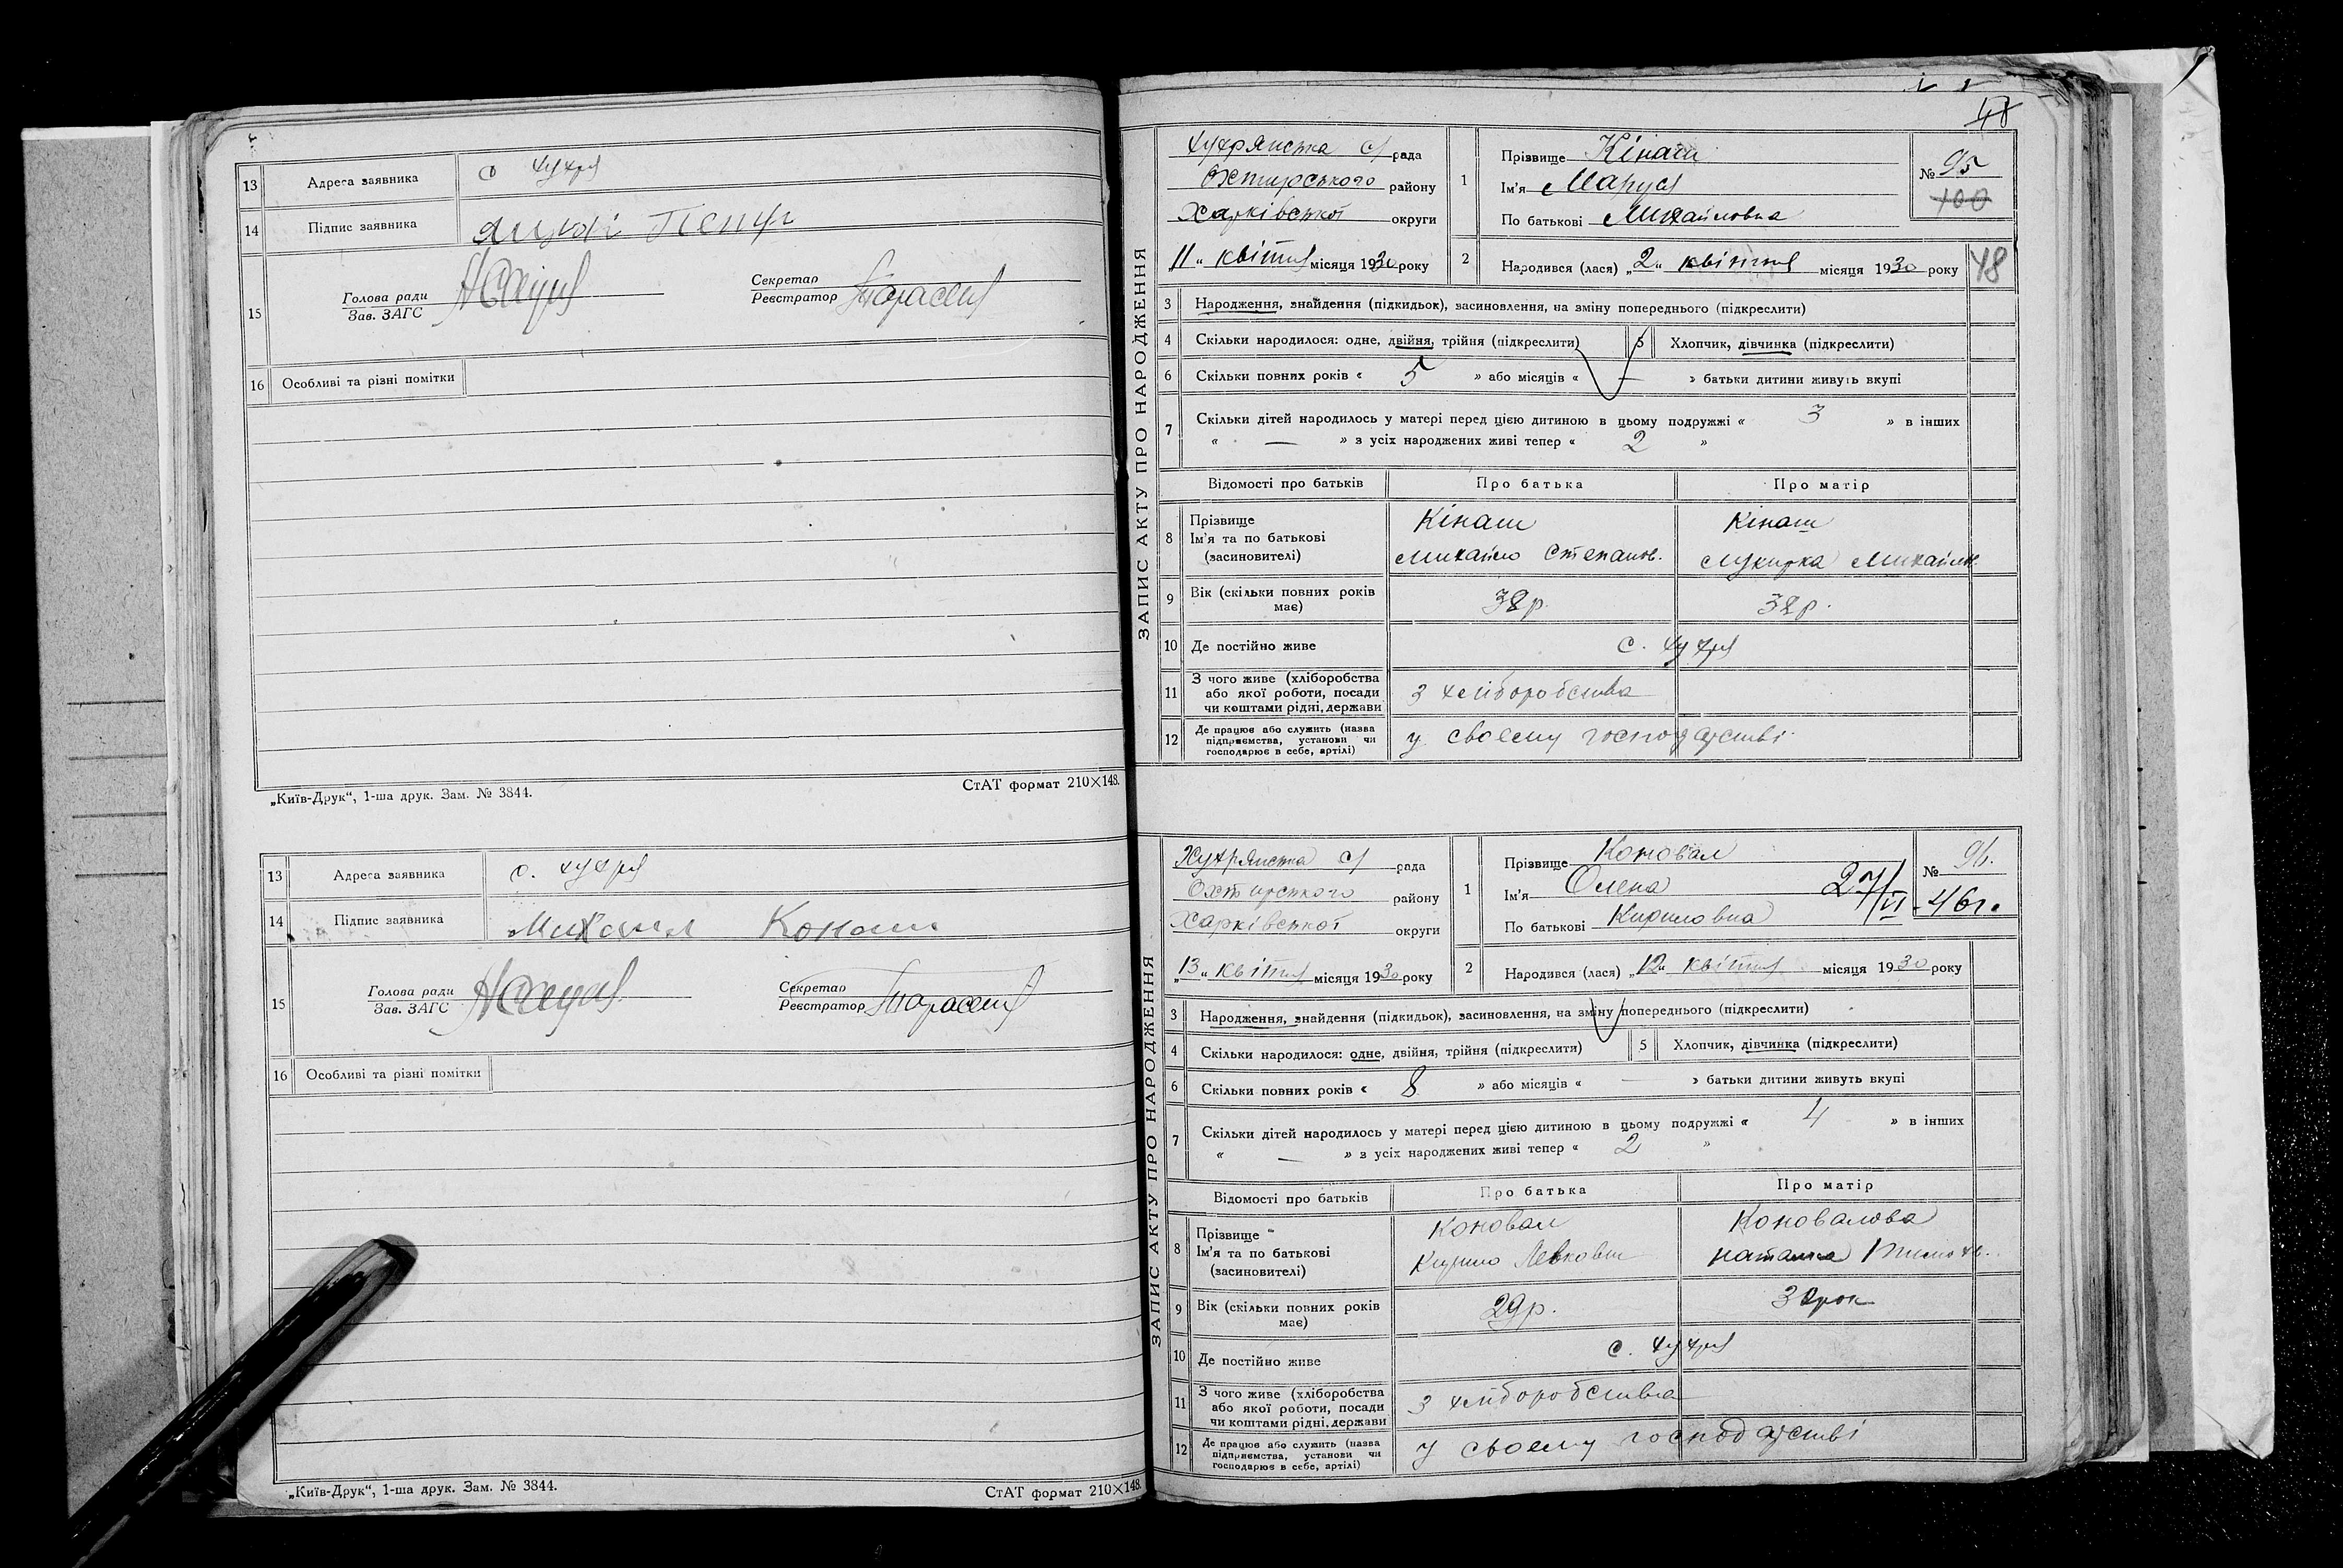 13 Адреса заявника с Хухря
14 Підпис заявника
15 Голова ради
Зав. ЗАГС
Секретар
Реєстратор Тарасенко
16 Особливі та різні помітки
„Київ-Друк“, 1-ша друк. Зам. № 3844.
СтАТ формат 210×148.
13 Адреса заявника с. Хухря
14 Підпис заявника
15 Голова ради
Зав. ЗАГС
Секретар
Реєстратор Тарасенко
16 Особливі та різні помітки
„Київ-Друк“, 1-ша друк. Зам. № 3844.
СтАТ формат 210×148.
48
ЗАПИС АКТУ ПРО НАРОДЖЕННЯ
Хухрянська с/рада
Охтирського району
Харківської округи
„11“ квітня місяця 1930 року
1 Прізвище Кінаш
Ім'я Маруся
По батькові Михайловна
№ 95
100
2 Народився (лася) „2“ квітня місяця 1930 року
48
3 Народження, знайдення (підкидьок), засиновлення, на зміну попереднього (підкреслити)
4 Скільки народилося: одне, двійня, трійня (підкреслити) 5 Хлопчик, дівчинка (підкреслити)
6 Скільки повних років « 5 » або місяців « — » батьки дитини живуть вкупі
7 Скільки дітей народилось у матері перед цією дитиною в цьому подружжі « 3 » в інших
« — » з усіх народжених живі тепер « 2 »
Відомості про батьків Про батька Про матір
8 Прізвище Кінаш Кінаш
Ім'я та по батькові Михайло Степанов. Михайл.
(засиновителі)
9 Вік (скільки повних років має) 32р. 32р.
10 Де постійно живе с. Хухря
11 З чого живе (хліборобства
або якої роботи, посади
чи коштами рідні, держави
з хліборобства
12 Де працює або служить (назва
підприємства, установи чи
господарює в себе, артілі)
у своєму господарстві
ЗАПИС АКТУ ПРО НАРОДЖЕННЯ
Хухрянська с/рада
Охтирського району
Харківської округи
„13“ квітня місяця 1930 року
1 Прізвище Коновал
Ім'я Олена
По батькові Кириловна
27/VI-46г.
№ 96.
2 Народився (лася) „12“ квітня місяця 1930 року
3 Народження, знайдення (підкидьок), засиновлення, на зміну попереднього (підкреслити)
4 Скільки народилося: одне, двійня, трійня (підкреслити) 5 Хлопчик, дівчинка (підкреслити)
6 Скільки повних років « 8 » або місяців « — » батьки дитини живуть вкупі
7 Скільки дітей народилось у матері перед цією дитиною в цьому подружжі « 4 » в інших
« — » з усіх народжених живі тепер « 2 »
Відомості про батьків Про батька Про матір
8 Прізвище Коновал Коновалова
Ім'я та по батькові Кирило Левкович Наталка
(засиновителі)
9 Вік (скільки повних років має) 29р.
10 Де постійно живе с. Хухря
11 З чого живе (хліборобства
або якої роботи, посади
чи коштами рідні, держави
з хліборобства
12 Де працює або служить (назва
підприємства, установи чи
господарює в себе, артілі)
у своєму господарстві